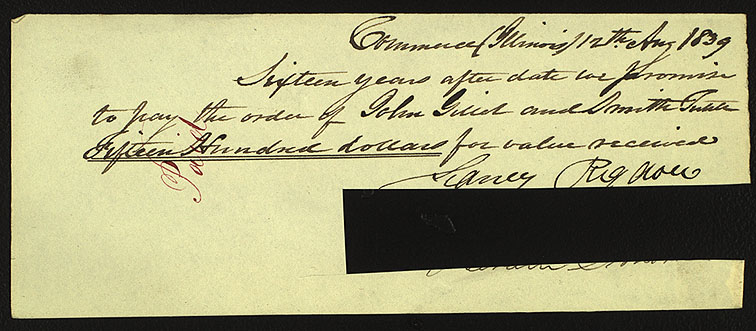 Commerce (Illinois) 12th Aug 1839
Sixteen years after date we promise
to pay the order of John Gillet and Smith Tuttle
Fifteen Hundred dollars for value received
Paid
Sidney Rigdon